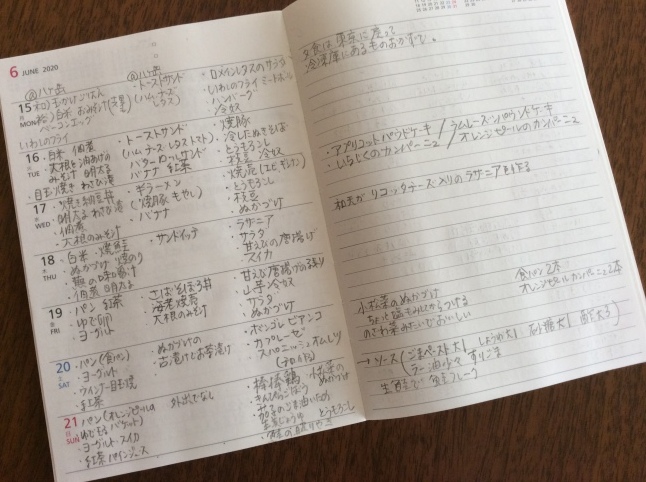 6 JUNE 2020
@八ヶ岳
@八ヶ岳
・トーストサンド
(ハム チーズ レタス)
・ロメインレタスのサラダ
・いわしのフライ ミートボール
・ハンバーグ
・冷奴
15
MON
ベーコンエッグ
いわしのフライ
16
TUE
・白米 佃煮
・大根と油あげの
みそ汁 明太子
・目玉焼き わさび漬
・トーストサンド
(ハム チーズ レタス トマト)
・バターロールサンド
・バナナ 紅茶
・焼豚
・冷したぬきそば
・とうもろこし
・枝豆 冷奴
17
WED
・明太子 わさび漬
・佃煮
・大根のみそ汁
・ギラーメン
(焼豚 もやし)
・バナナ
・とうもろこし
・枝豆
・ぬかづけ
18
THU
・白米 焼鮭
・ぬかづけ 焼のり
・佃煮 明太子
・サンドイッチ
・ラザニア
・サラダ
・甘えびの唐揚げ
・スイカ
19
FRI
・パン 紅茶
・ゆで卵
・ヨーグルト
・大根のみそ汁
・甘えび唐揚げの残り
・山芋 冷奴
・サラダ
・ぬかづけ
20
SAT
・パン(食パン)
・ヨーグルト
・ウインナー 目玉焼
・紅茶
・ぬかづけの
古漬けでお茶漬け
・ボンゴレビアンコ
・カプレーゼ
・スパニッシュオムレツ
21
SUN
・パン(オレンジピールの
・ヨーグルト・スイカ
・紅茶 パインジュース
外出でなし
・棒棒鶏
・きんぴらごぼう
・茄子のごま油いため
とうもろこし
小松菜の
ぬかづけ
夕食は東京に戻って
冷凍庫にあるものおかずで。
・アプリコットパウンドケーキ / ラムレーズンパウンドケーキ
・いちじくのカンパーニュ / オレンジピールのカンパーニュ
リコッタチーズ入りのラザニアを作る
食パン 2本
オレンジピールカンパーニュ 2本
小松菜のぬかづけ
ちょっと塩もみしてからつける
のざわ菜みたいでおいしい
→ソース(ごまペースト大1 しょうゆ大1 砂糖大1 酢大3)
ラー油少々 すりごま